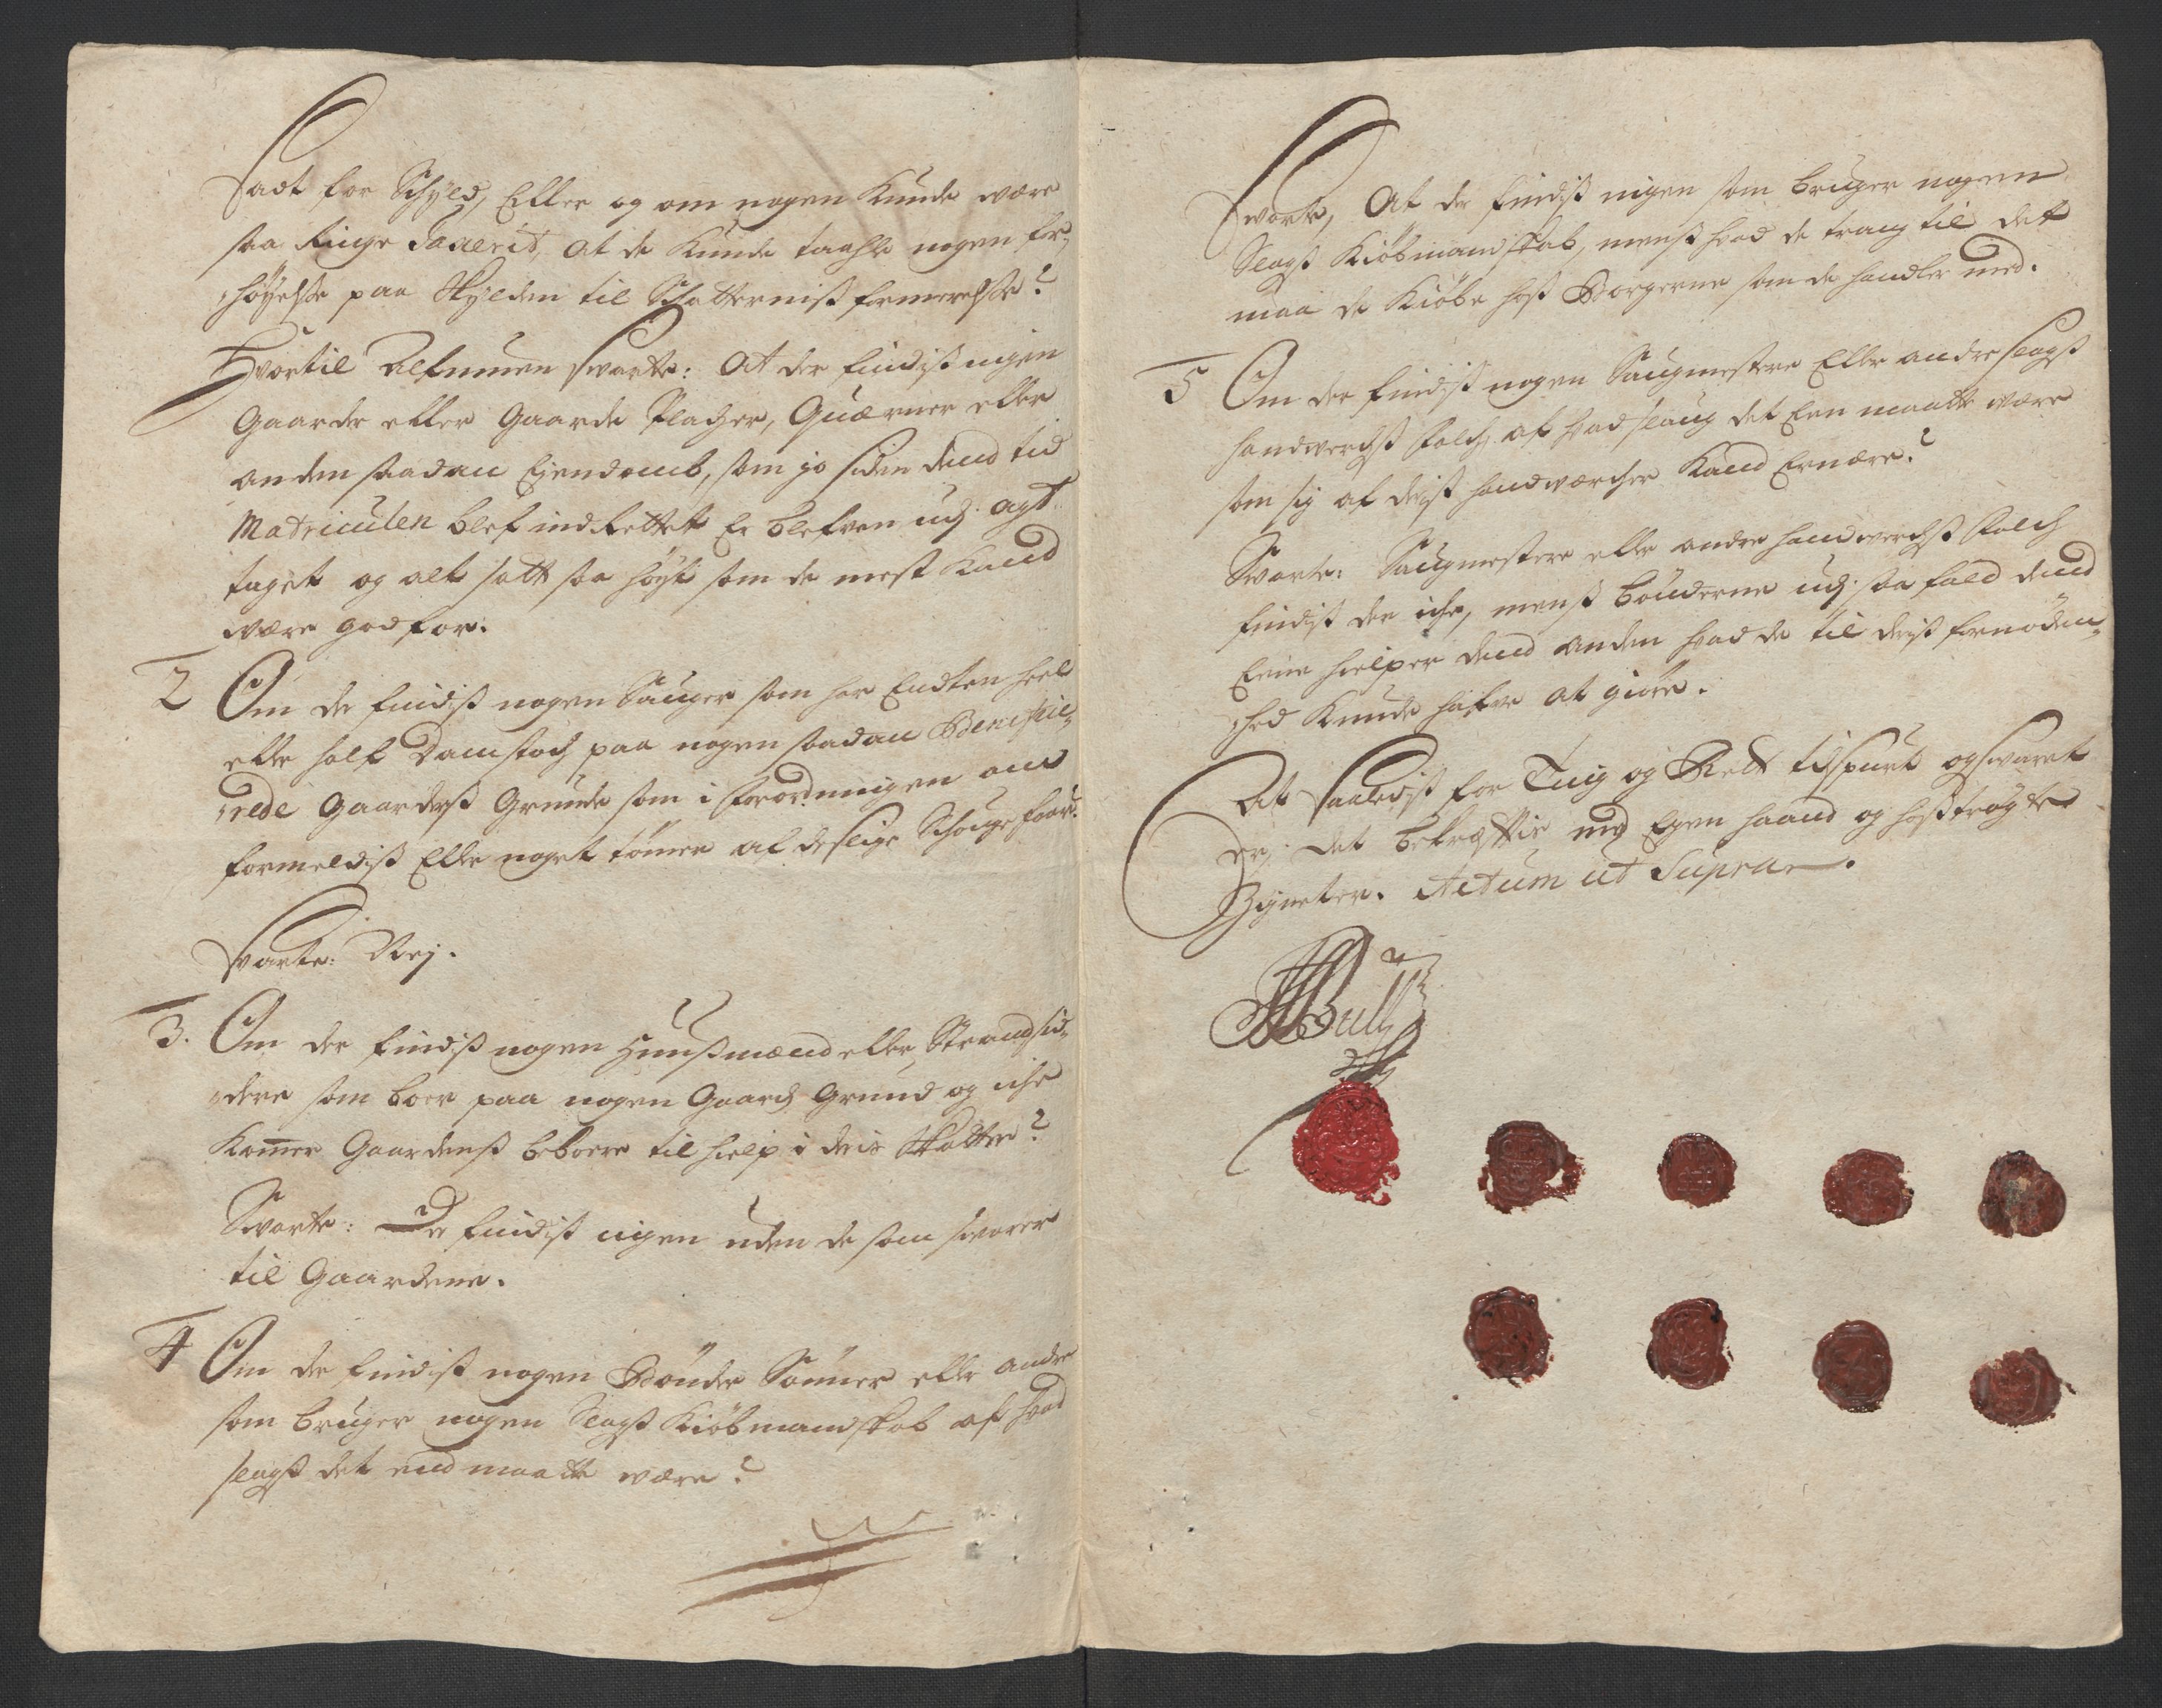 Sadt for Schyld, Eller og om nogen Kunde være
saa Ringe Taxerit, at de Kunde taahle nogen for¬
¬höyelse paa Skylden til Schatternis formerelse?
Hvortil Almuen svarte: At der findis ingen
Gaarder eller Gaarde Platzer, Quærner eller
anden saadan Eyendomb, som jo siden dend tid
Matriculen blef indrettet Er blefven udj agt
taget og alt satt saa høyt som de mest Kand
være god for.
2 Om der findis nogen Sauger som har Endten heel
eller half Damstoch paa nogen saadan Benefice¬
¬rede Gaarders Grunde som i forordningen om
formeldis Eller noget tömer af deslige Schouge foor?
Svarte: Nej.
3. Om der findis nogen Huusmænd eller Strandsid¬
¬dere som boer paa nogen Gaards Grund og iche
Komer Gaardens beboere til hielp i deris Skatter?
Svarte: De findis ingen uden de som svarer
til Gaardene.
4 Om der findis nogen Bönder Sönner eller andre
som bruger nogen Slags Kiöbmandskab af hvad
slags det end maatte være?
Svarte, At der findis ingen som bruger nogen
Slags Kiöbmandskab, mens hvad de trang til det
maa de Kiöbe hos Borgerne som de handler med.
5 Om der findis nogen Saugmestere Eller andre slags
handverchs folch af hvad slaug det Een maatte være
som sig af deris handværcher Kand Ernære?
Svarte: Saugmestere eller andre handverchs folch
findis der iche, mens bönderne udj saa fald dend
Eene hielper dend anden hvad de til deris fornöden¬
¬hed Kunde hafve at giöre.
At saaledis for Ting og Rett tilspurt og svaret
er, det bekræftis med Egen haand og hoströgte
Zigneter. Actum ut Supra.
Bull